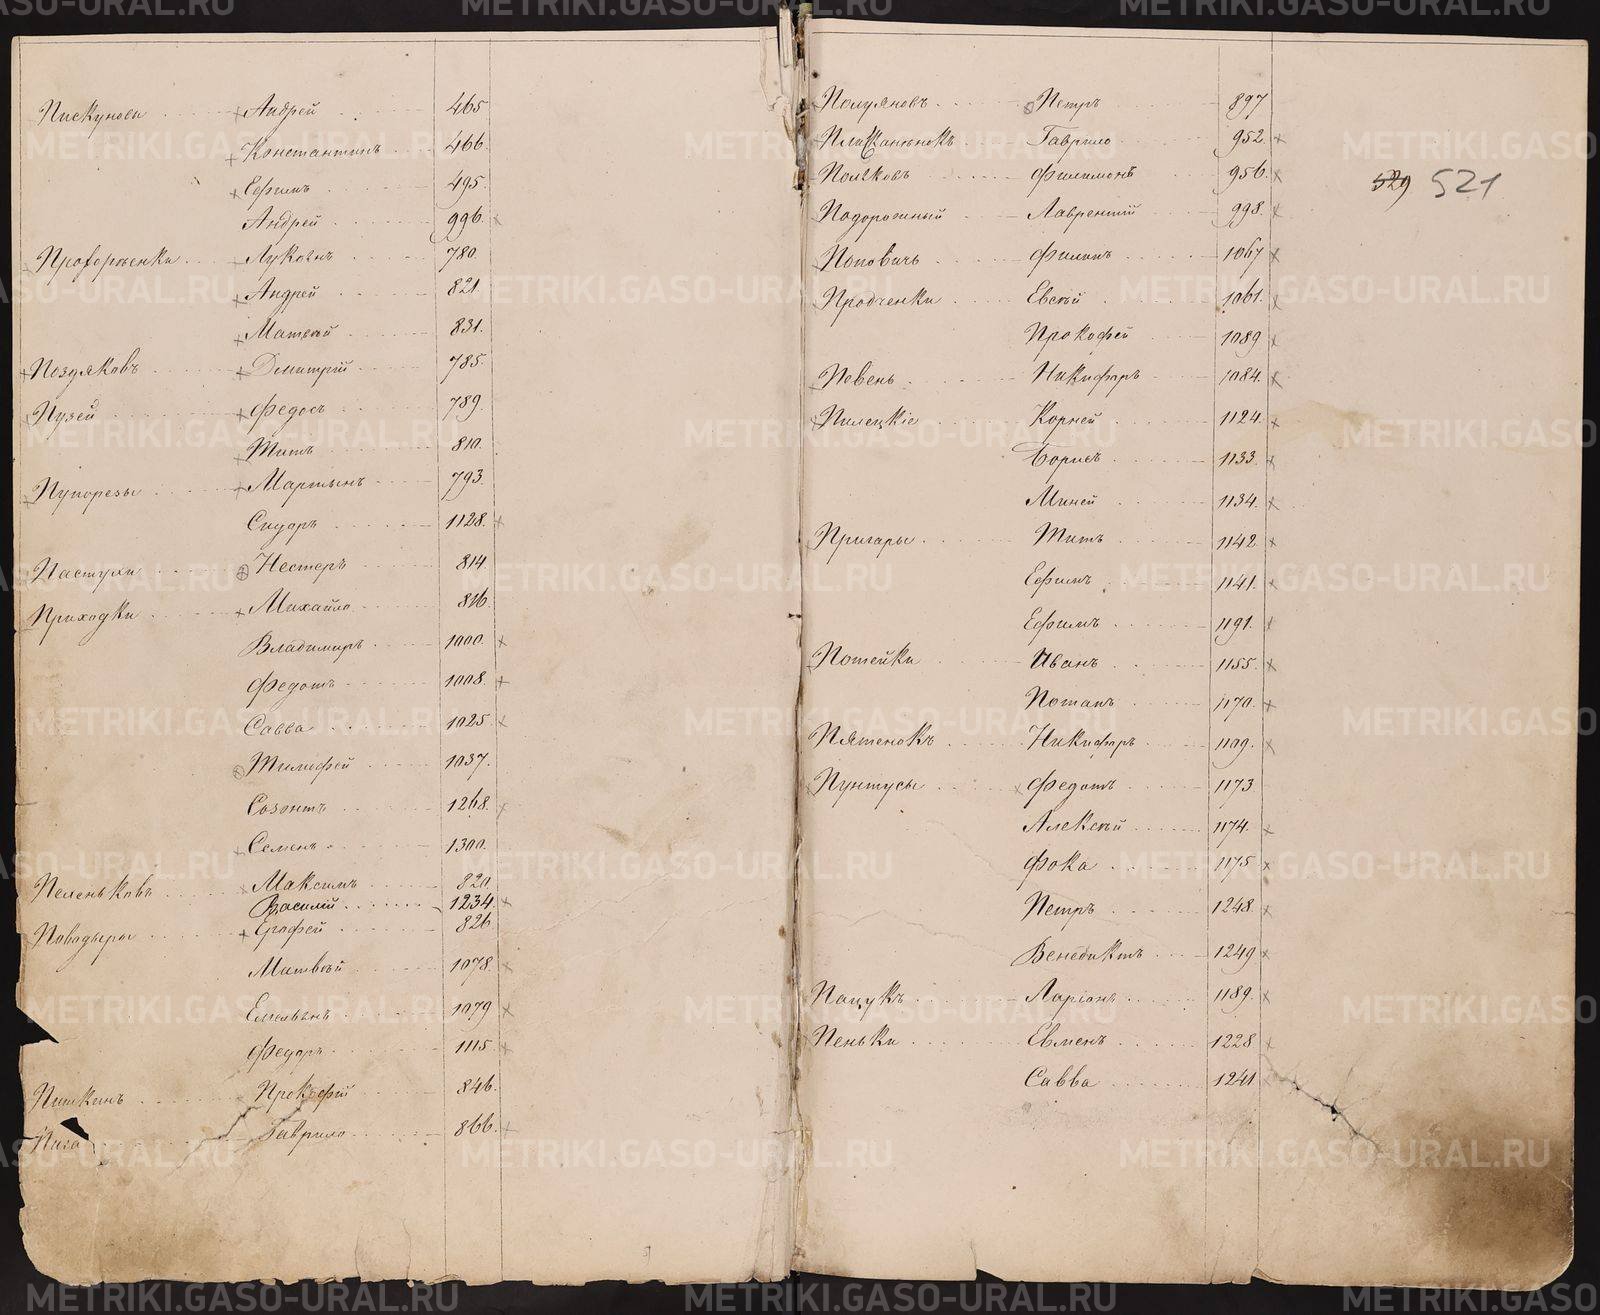 Пискуновы Андрей 465
Константинъ 466.
Ефимъ 495.
Андрей 996.
Прохоренки Лукьянъ 780.
Андрей 821.
Матвѣй 831.
Поздяковъ Дмитрій 785.
Пузей Федосъ 789.
Титъ 810.
Пупорезы Мартынъ 793.
Сидоръ 1128.
Пастухи Нестеръ 814.
Приходки Михайло 816.
Владимиръ 1000.
Федотъ 1008.
Савва 1025.
Тимофей 1037.
Созонтъ 1268.
Семенъ 1300.
Пеленьковъ Максимъ 820.
Василій 1234.
Поводыры Ерофей 826.
Матвѣй 1078.
Емельянъ 1079
Федоръ 1115.
Пишкинъ Прокофій 846.
Гаврило 866.
Полуяновъ Петръ 897
Гаврило 952.
Поляковъ Филимонъ 956.
529 521
Подорожный Лаврентій 998.
Поповичъ Филипъ 1067
Продченки Евсѣй 1061.
Прокофей 1089
Певень Никифоръ 1084.
Пилецкіе Корней 1124.
Борисъ 1133
Миней 1134.
Пригары Титъ 1142
Ефимъ 1141.
Ефимъ 1191.
Потейки Иванъ 1155.
Потапъ 1170.
Пятенокъ Никифоръ 1109.
Пунтусы Федотъ 1173
Алексѣй 1174.
Фока 1175
Петръ 1248.
Венедиктъ 1249
Пацукъ Ларіонъ 1189.
Пеньки Евменъ 1228
Савва 1241
METRIKI.GASO-URAL.RU